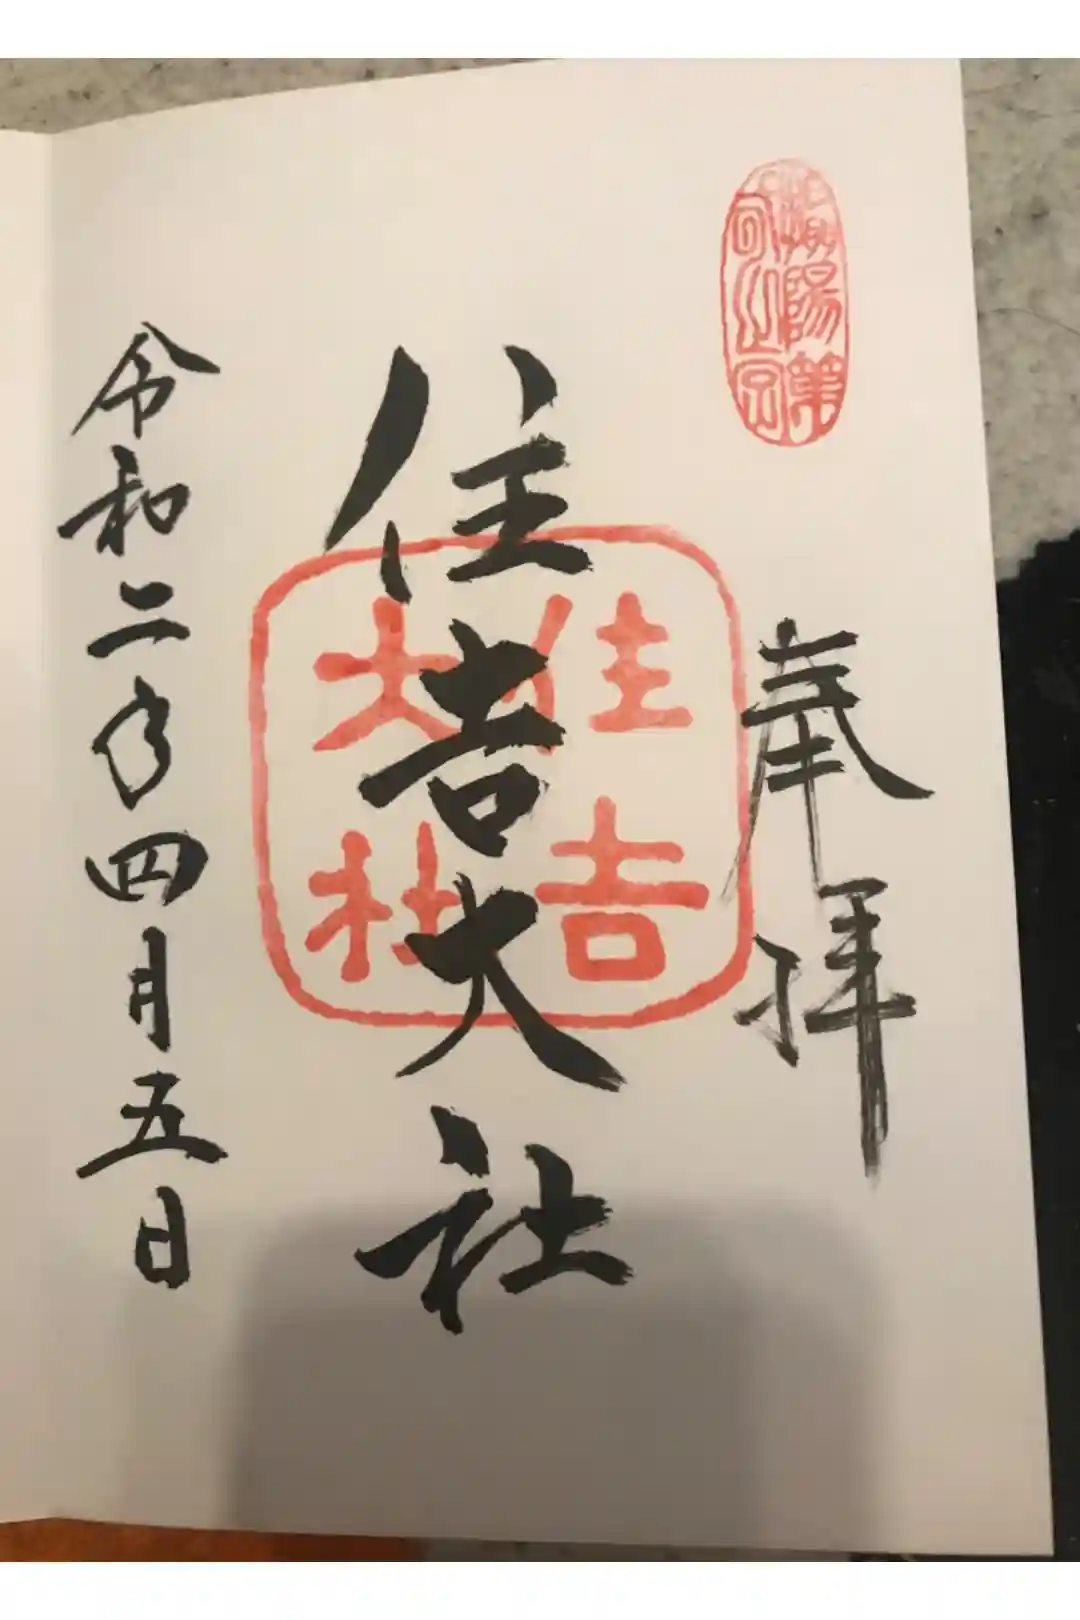 摂陽第一之宮
奉拝
住吉大社
住吉大社
令和二年四月五日